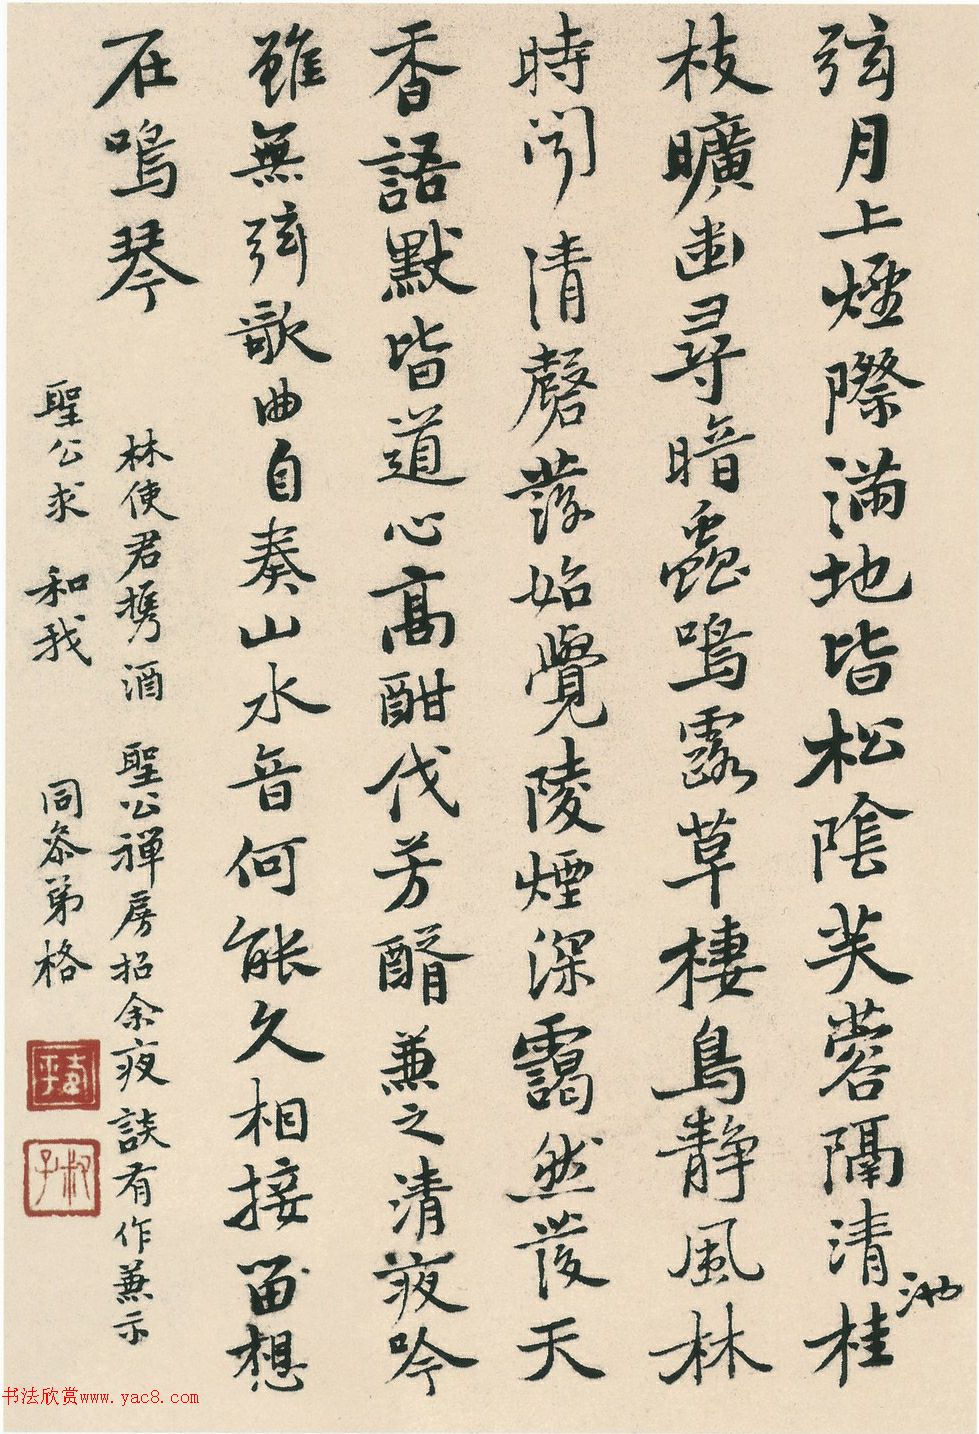 弦月上煙際滿地皆松陰芙蓉隔清池桂
枝曠幽尋暗蟲鳴露草棲鳥靜風林
時聞清磬落始覺陵煙深靄然發天
香語默皆道心高酣代芳醑兼之清夜吟
雖無弦歌曲自奏山水音何能久相接留想
在鳴琴
林使君携酒 聖公禅房招余夜談有作兼示
聖公求 和我 同叅弟格
叔子
书法欣赏www.yac8.com